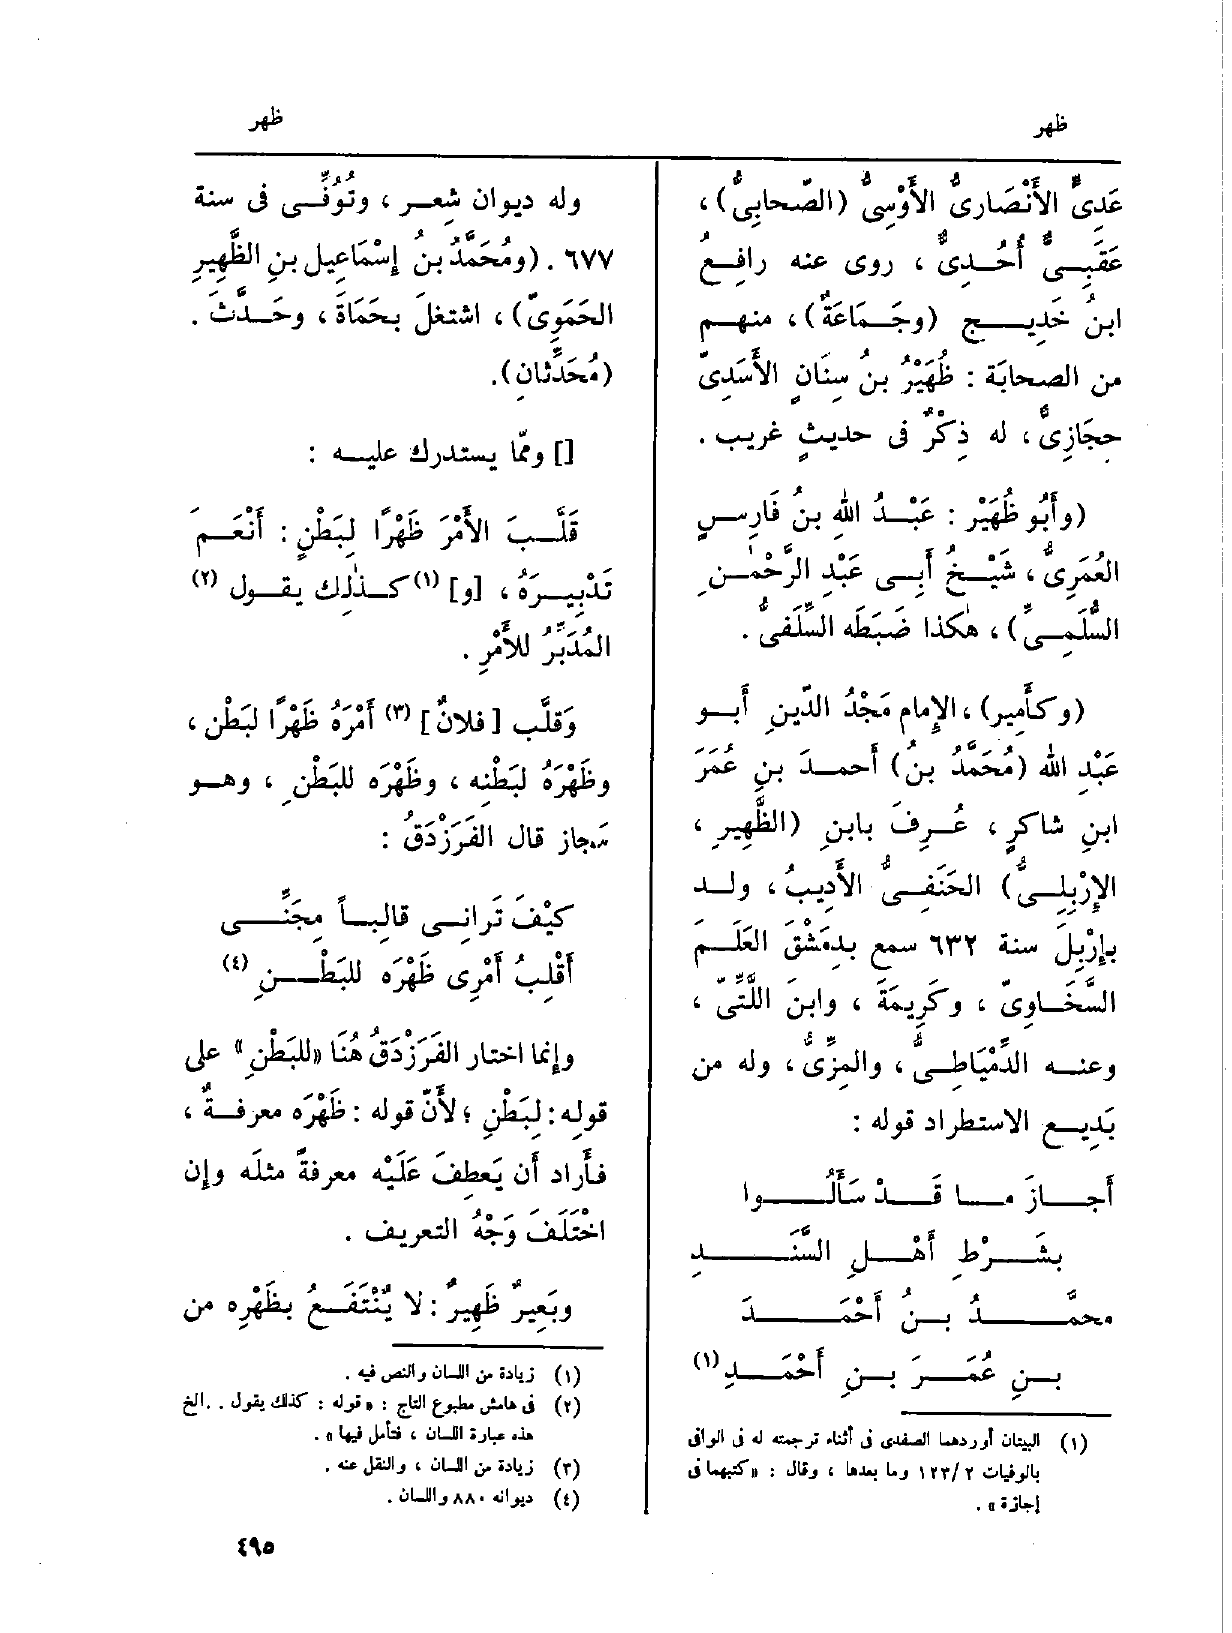 ظهر
ظهر
عَدِىٍّ الأَنْصَارىُّ الأَوْسِىُّ (الصّحابِىُّ)،
عَقَبِىٌّ أُحُدِىٌّ ، روى عنه رافِعُ
ابنُ خَدِيج (وجَمَاعَةٌ)، منهم
من الصحابَة : ظُهَيْرُ بنُ سِنَانٍ الأَسَدِىّ
حِجَازِىٌّ، له ذِكْرٌ فى حديثٍ غريب .
(وأَبُو ظُهَيْر : عَبْدُ اللهِ بنُ فَارِسٍ
العُمَرِىُّ، شَيْخُ أَبِى عَبْدِ الرَّحْمٰنِ
السُّلَمِىِّ)، هٰكذا ضَبَطَه السِّلَفىُّ .
(وكأَمِير)، الإِمام مَجْدُ الدّينِ أَبو
عَبْدِ الله (مُحَمَّدُ بنُ) أَحمدَ بنِ عُمَرَ
ابنِ شاكرٍ، عُرِفَ بابنِ (الظَّهِيرِ ،
الإِرْبِلِىُّ) الحَنَفِىُّ الأَدِيبُ، ولد
بإِرْبِلَ سنة ٦٣٢ سمع بدِمَشْقَ العَلَمَ
السَّخَاوِىّ ، وكَرِيمَةَ ، وابنَ اللَّتِّىّ ،
وعنه الدِّمْيَاطِىُّ، والمِزِّىُّ، وله من
بَدِيع الاستطراد قوله :
أَجازَ ما قَدْ سَأَلُوا
بشَرْطِ أَهْلِ السَّنَدِ
محمَّدُ بنُ أَحْمَدَ
بنِ عُمَرَ بنِ أَحْمَدِ (١)
(١) البيتان أوردهما الصفدى فى أثناء ترجمته له فى الوافى
بالوفيات ١٢٣/٢ وما بعدها ، وقال : «كتبهما فى
إجازة» .
وله ديوان شِعر ، وتُوُفِّى فى سنة
٦٧٧ . (ومُحَمَّدُ بنُ إِسْمَاعِيل بنِ الظَّهِيرِ
الحَمَوِىّ)، اشتغلَ بحَمَاةَ ، وحَدَّثَ .
(مُحَدِّثانِ).
[] وممّا يستدرك عليه :
قَلَّبَ الأَمْرَ ظَهْرًا لِبَطْنٍ : أَنْعَمَ
تَدْبِيرَهُ ، [و] (١) كذٰلك يقول (٢)
المُدَبِّرُ للأَمْرِ .
وَقَلَّب [فلانٌ] (٣) أَمْرَهُ ظَهْرًا لبَطْن ،
وظَهْرَهُ لبَطْنِه ، وظَهْرَه للبَطْنِ ، وهو
مَجاز قال الفَرَزْدَقُ :
كَيْفَ تَرانِى قالِباً مِجَنِّى
أَقْلِبُ أَمْرِى ظَهْرَه للبَطْنِ (٤)
وإنما اختار الفَرَزْدَقُ هُنَا «للبَطْنِ» على
قولِه : لِبَطْنٍ ؛ لأَنّ قوله : ظَهْرَه معرفةٌ ،
فأَراد أن يَعطِفَ عَلَيْه معرفةً مثلَه وإن
اخْتَلَفَ وَجْهُ التعريف .
وبَعِيرٌ ظَهِيرٌ : لا يُنْتَفَعُ بظَهْرِه من
(١) زيادة من اللسان والنص فيه .
(٢) فى هامش مطبوع التاج : «قوله : كذلك يقول . . الخ
هذه عبارة اللسان ، فتأمل فيها» .
(٣) زيادة من اللسان ، والنقل عنه .
(٤) ديوانه ٨٨٠ واللسان .
٤٩٥